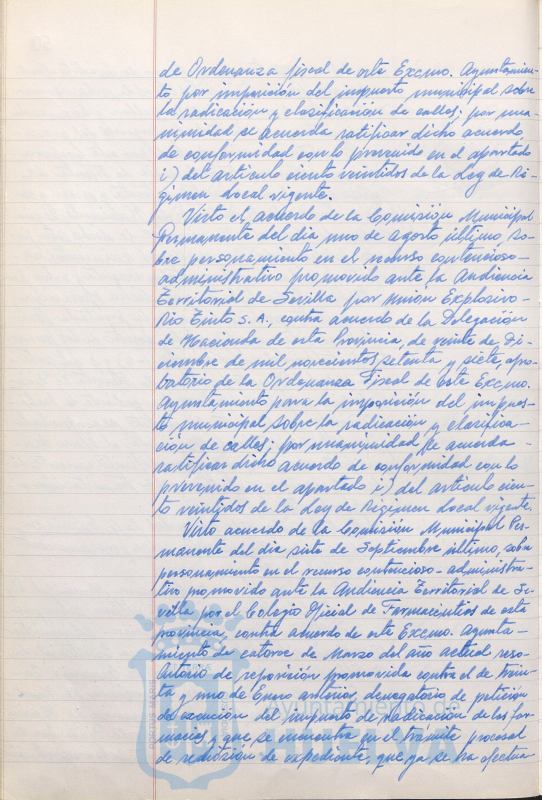 de Ordenanza fiscal de este Excmo. Ayuntamien-
to por imposición del impuesto municipal sobre
la radicación y clasificación de calles; por una-
nimidad se acuerda ratificar dicho acuerdo,
de conformidad con lo prevenido en el apartado
i) del artículo ciento veintidos de la Ley de Ré-
gimen Local vigente.
Visto el acuerdo de la Comisión Municipal
Permanente del día uno de agosto último so-
bre personamiento en el recurso contencioso-
administrativo promovido ante la Audiencia
Territorial de Sevilla por Unión Explosivo-
Rio Tinto S.A., contra acuerdo de la Delegación
de Hacienda de esta Provincia, de veinte de Di-
ciembre de mil novecientos setenta y siete, apro-
batorio de la Ordenanza Fiscal de este Excmo.
Ayuntamiento para la imposición del impues-
to municipal sobre la radicación y clasifica-
ción de calles; por unanimidad se acuerda
ratificar dicho acuerdo de conformidad con lo
prevenido en el apartado i) del artículo cien-
to veintidos de la Ley de Régimen Local vigente.
Visto acuerdo de la Comisión Municipal Per-
manente del día siete de Septiembre último, sobre
personamiento en el recurso contencioso-administra-
tivo promovido ante la Audiencia Territorial de Se-
villa por el Colegio Oficial de Farmacéuticos de esta
provincia, contra acuerdo de este Excmo. Ayunta-
miento de catorce de Marzo del año actual reso-
lutorio de reposición promovida contra el de trein-
ta y uno de Enero anterior, denegatorio de petición
de exención del impuesto de radicación de las far-
macias, que se encuentra en el trámite procesal
de remisión de expediente, que ya se ha efectua
Ayuntamiento de
HUELVA